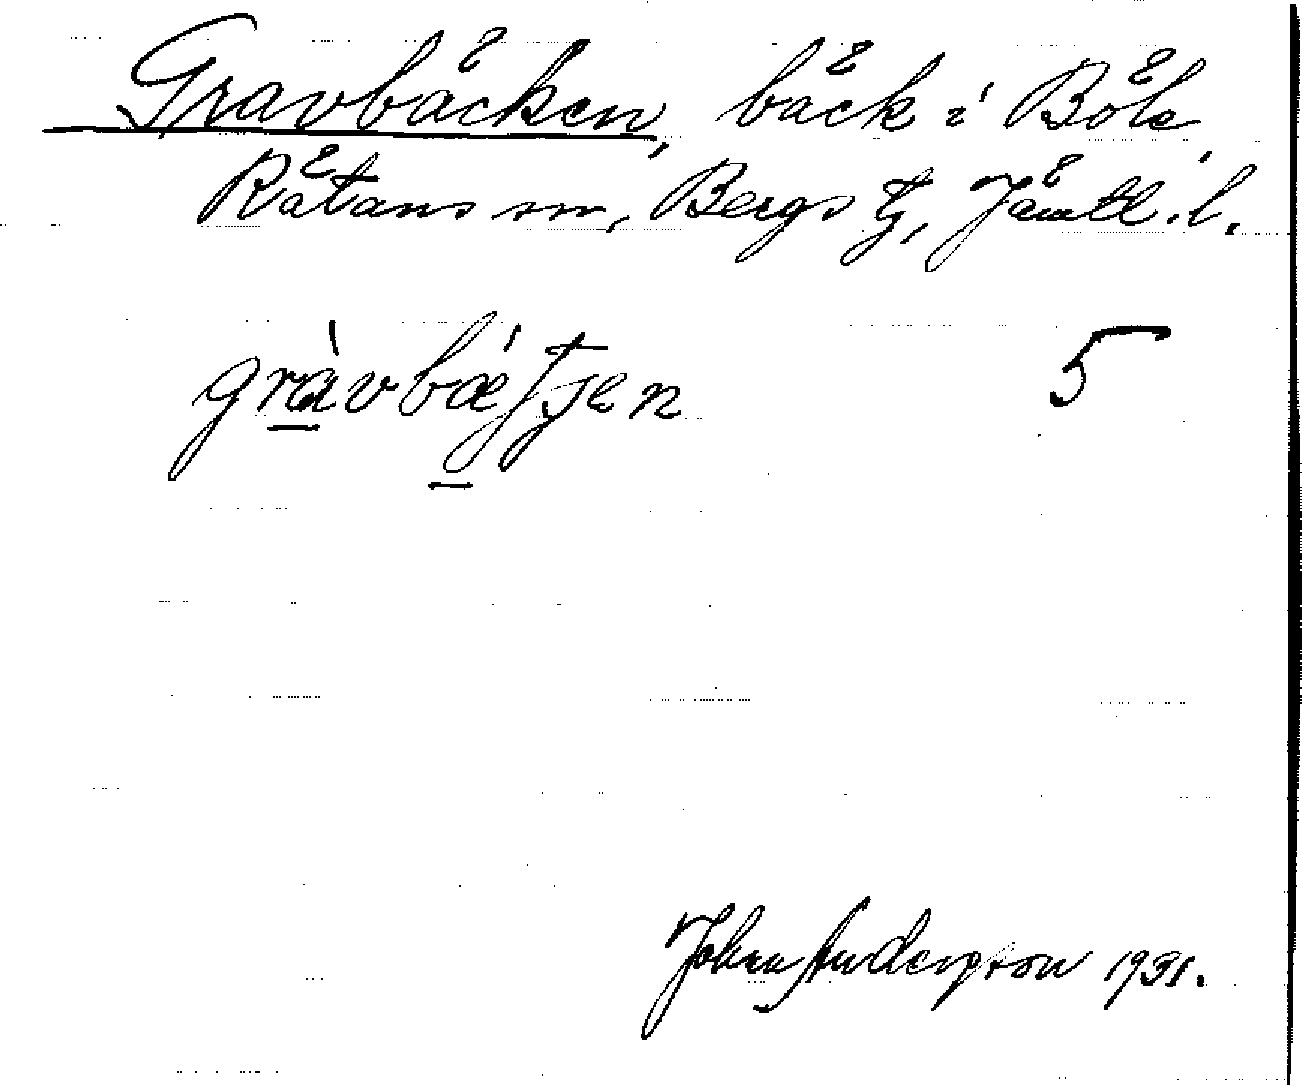 Gravbäcken, bäck i Böle,
Rätans sn, Bergs tg, Jämtl. l.
gràvbǽtjen 5
John Andersson 1931.